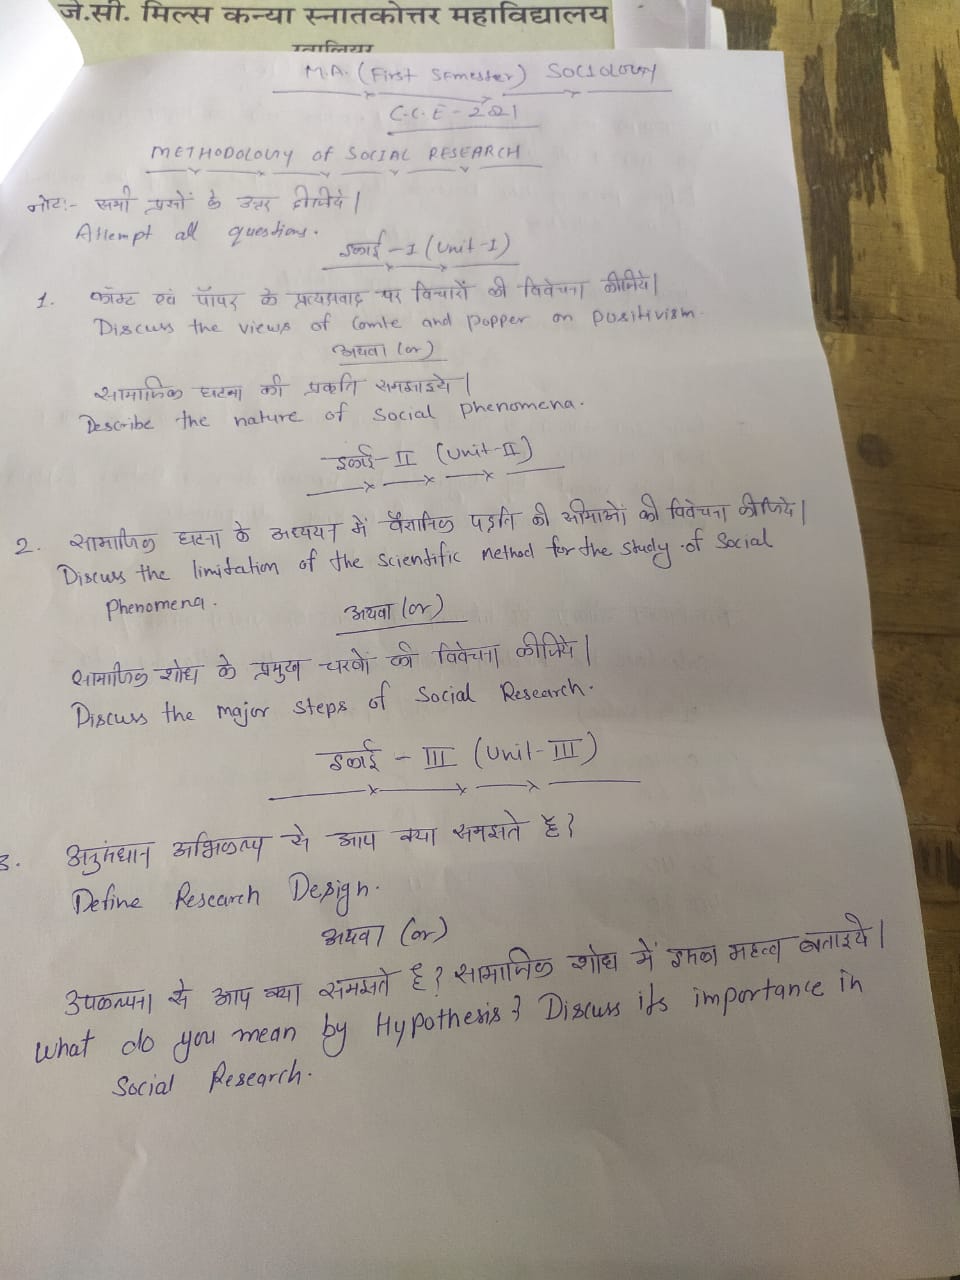 जे.सी. मिल्स कन्या स्नातकोत्तर महाविद्यालय
ग्वालियर
M.A. (First Semester) SOCIOLOGY
C.C.E - 2021
METHODOLOGY of SOCIAL RESEARCH
नोट:- सभी प्रश्नों के उत्तर दीजिये।
Attempt all questions.
इकाई - I (Unit-I)
1. कॉम्ट एवं पॉपर के प्रत्यक्षवाद पर विचारों की विवेचना कीजिये।
Discuss the views of Comte and Popper on positivism.
अथवा (or)
सामाजिक घटना की प्रकृति समझाइये।
Describe the nature of Social phenomena.
इकाई - II (Unit-II)
2. सामाजिक घटना के अध्ययन में वैज्ञानिक पद्धति की सीमाओं की विवेचना कीजिये।
Discuss the limitation of the scientific method for the study of Social
Phenomena.
अथवा (or)
सामाजिक शोध के प्रमुख चरणों की विवेचना कीजिये।
Discuss the major steps of Social Research.
इकाई - III (Unit-III)
3. अनुसंधान अभिकल्प से आप क्या समझते हैं?
Define Research Design.
अथवा (or)
उपकल्पना से आप क्या समझते हैं? सामाजिक शोध में इसका महत्व बताइये।
What do you mean by Hypothesis? Discuss its importance in
Social Research.